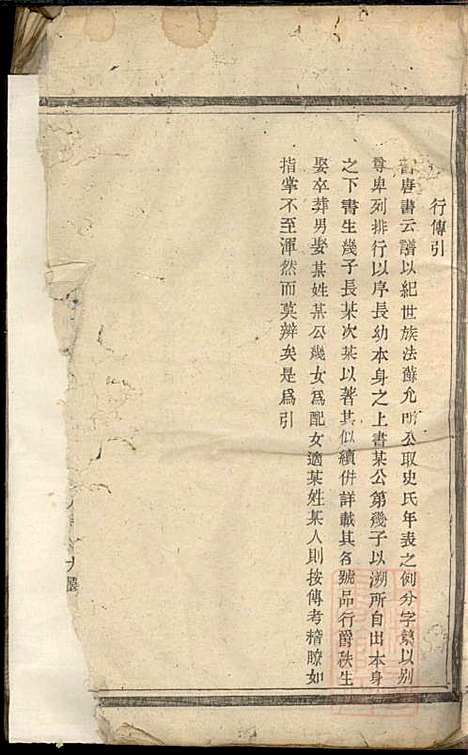 行傳引
舊唐書云譜以紀世族法蘇允明公取史氏年表之例分字繫以別
尊卑列排行以序長幼本身之上書某公第幾子以溯所自出本身
之下書生幾子長某次某以著其似續併詳載其名號品行爵秩生
娶卒葬男娶某姓某公幾女爲配女適某姓某人則按傳考稽瞭如
指掌不至渾然而莫辨矣是爲引